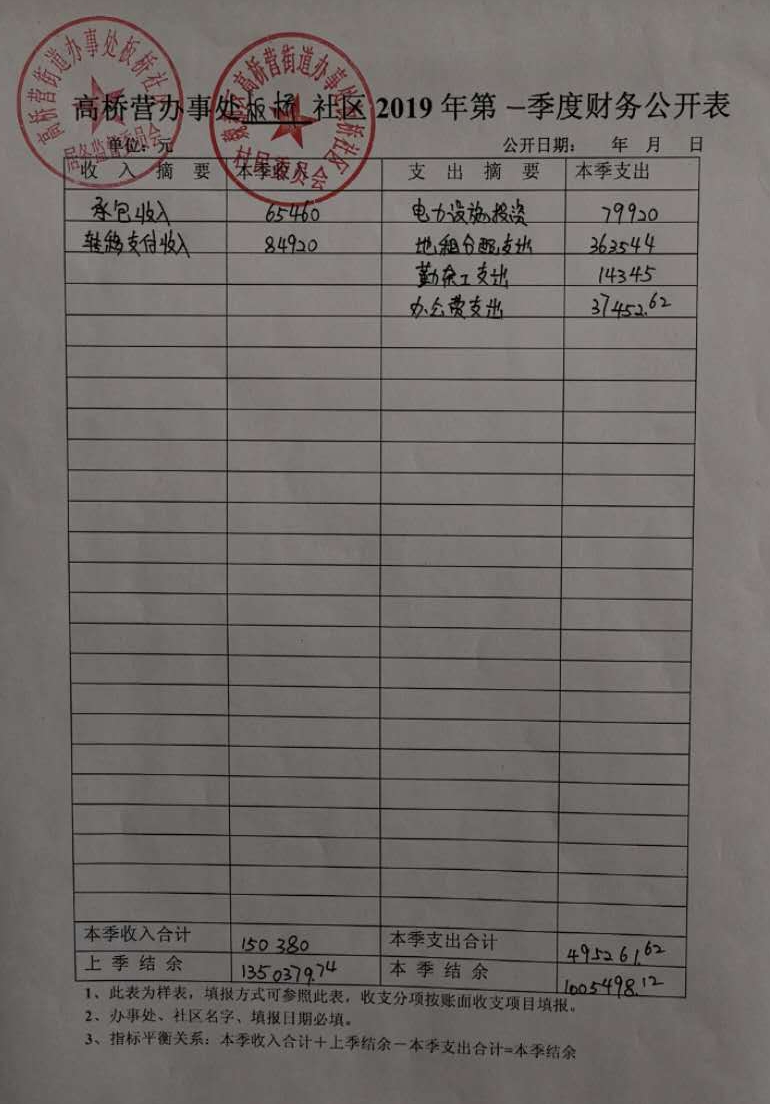 高桥营街道办事处板桥社区
居务监督委员会
高桥营街道办事处板桥社区
村民委员会
高桥营办事处板桥社区2019年第一季度财务公开表
单位：元 公开日期： 年 月 日
收入摘要 本季收入 支出摘要 本季支出
承包收入 65460 电力设施投资 79920
转移支付收入 84920 地租分配支出 363544
勤杂工支出 14345
办公费支出 37452.62
本季收入合计 150380 本季支出合计 495261.62
上季结余 1350379.74 本季结余 1005498.12
1、此表为样表，填报方式可参照此表，收支分项按账面收支项目填报。
2、办事处、社区名字、填报日期必填。
3、指标平衡关系：本季收入合计＋上季结余－本季支出合计=本季结余